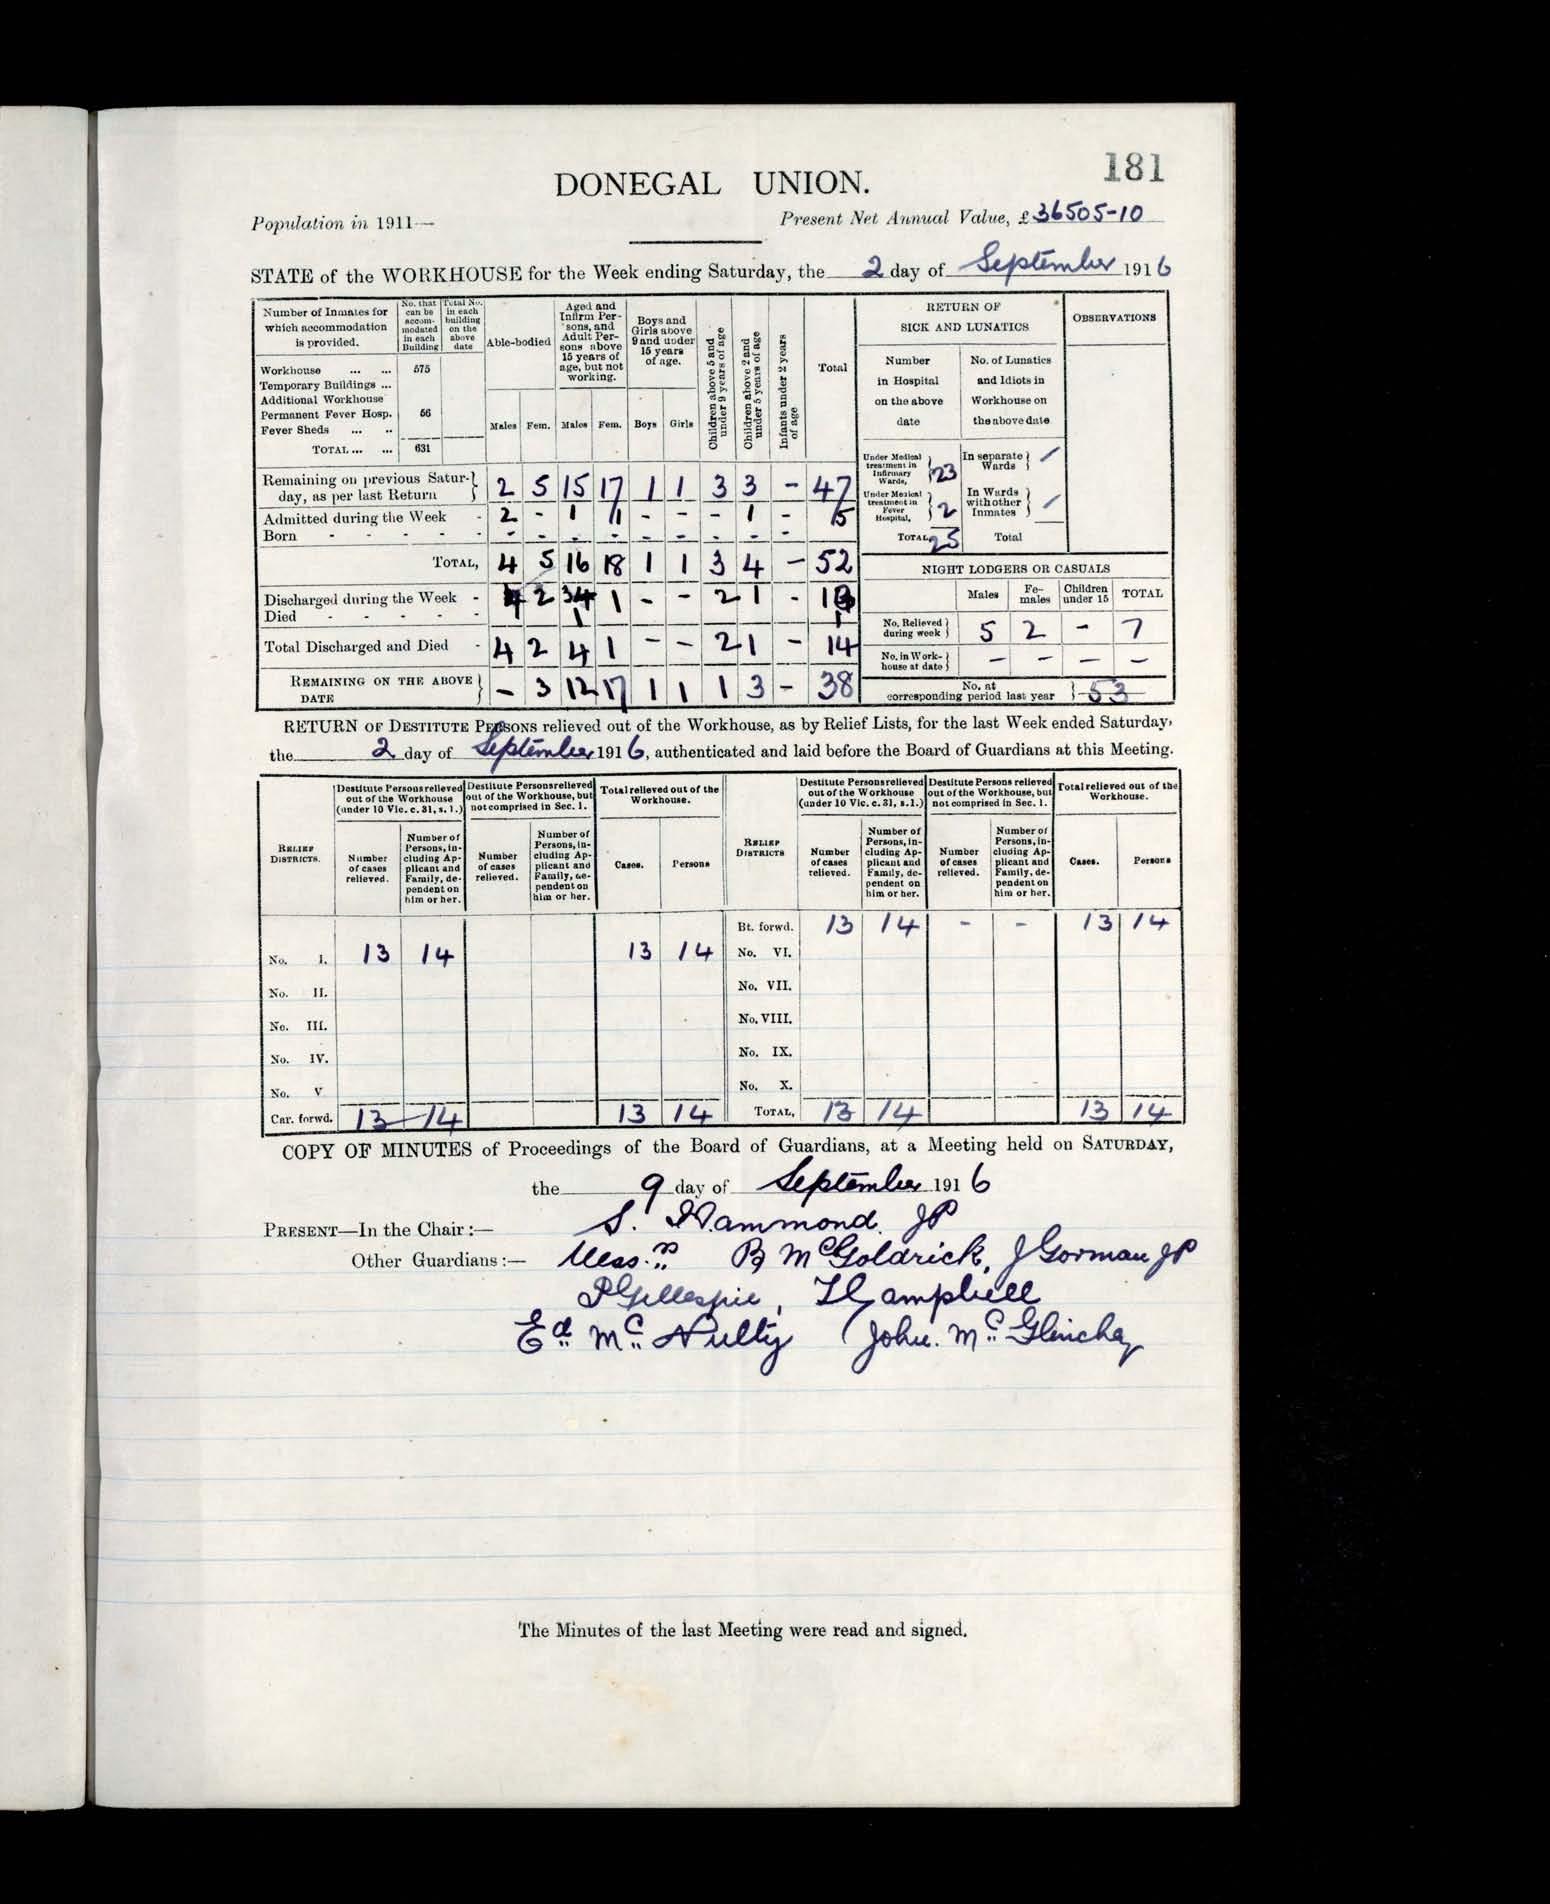 181
DONEGAL UNION.
Population in 1911—
Present Net Annual Value, £36505-10
STATE of the WORKHOUSE for the Week ending Saturday, the 2 day of September 1916
Number of Inmates for which accommodation is provided.
No. that can be accom- modated in each Building
Total No. in each building on the above date
Able-bodied
Aged and Infirm Per- sons, and Adult Per- sons above 15 years of age, but not working.
Boys and Girls above 9 and under 15 years of age.
Children above 5 and under 9 years of age
Children above 2 and under 5 years of age
Infants under 2 years of age
Total
RETURN OF SICK AND LUNATICS
OBSERVATIONS
Workhouse ... ... 575
Temporary Buildings ...
Additional Workhouse
Permanent Fever Hosp. 56
Fever Sheds ... ..
TOTAL ... ... 631
Males Fem. Males Fem. Boys Girls
Number in Hospital on the above date
No. of Lunatics and Idiots in Workhouse on the above date
Remaining on previous Satur- day, as per last Return 2 5 15 17 1 1 3 3 - 47
Admitted during the Week - 2 - 1 1 - - - 1 - 5
Born - - - - - - - - - - - - - -
TOTAL, 4 5 16 18 1 1 3 4 - 52
Discharged during the Week - 4 2 3 1 - - 2 1 - 13
Died - - - - - 1 1
Total Discharged and Died - 4 2 4 1 - - 2 1 - 14
REMAINING ON THE ABOVE DATE - 3 12 17 1 1 1 3 - 38
Under Medical treatment in Infirmary Wards, 23
In separate Wards /
Under Medical treatment in Fever Hospital, 2
In Wards with other Inmates /
TOTAL, 25 Total
NIGHT LODGERS OR CASUALS
Males Fe- males Children under 15 TOTAL
No. Relieved during week 5 2 - 7
No. in Work- house at date - - - -
No. at corresponding period last year 53
RETURN OF DESTITUTE PERSONS relieved out of the Workhouse, as by Relief Lists, for the last Week ended Saturday,
the 2 day of September 1916, authenticated and laid before the Board of Guardians at this Meeting.
RELIEF DISTRICTS.
Destitute Persons relieved out of the Workhouse (under 10 Vic. c. 31, s. 1.)
Destitute Persons relieved out of the Workhouse, but not comprised in Sec. 1.
Total relieved out of the Workhouse.
RELIEF DISTRICTS
Destitute Persons relieved out of the Workhouse (under 10 Vic. c. 31, s.1.)
Destitute Persons relieved out of the Workhouse, but not comprised in Sec. 1.
Total relieved out of the Workhouse.
Number of cases relieved.
Number of Persons, in- cluding Ap- plicant and Family, de- pendent on him or her.
Number of cases relieved.
Number of Persons, in- cluding Ap- plicant and Family, de- pendent on him or her.
Cases. Persons
Number of cases relieved.
Number of Persons, in- cluding Ap- plicant and Family, de- pendent on him or her.
Number of cases relieved.
Number of Persons, in- cluding Ap- plicant and Family, de- pendent on him or her.
Cases. Persons
Bt. forwd. 13 14 - - 13 14
No. I. 13 14 13 14 No. VI.
No. II. No. VII.
No. III. No. VIII.
No. IV. No. IX.
No. V No. X.
Car. forwd. 13 14 13 14 TOTAL, 13 14 13 14
COPY OF MINUTES of Proceedings of the Board of Guardians, at a Meeting held on SATURDAY,
the 9 day of September 1916
PRESENT—In the Chair :— S. Hammond. JP
Other Guardians :— Messrs B McGoldrick, J Gorman JP
P Gillespie, T Campbell
Ed. Mc. Nulty John. Mc. Glinchey
The Minutes of the last Meeting were read and signed.